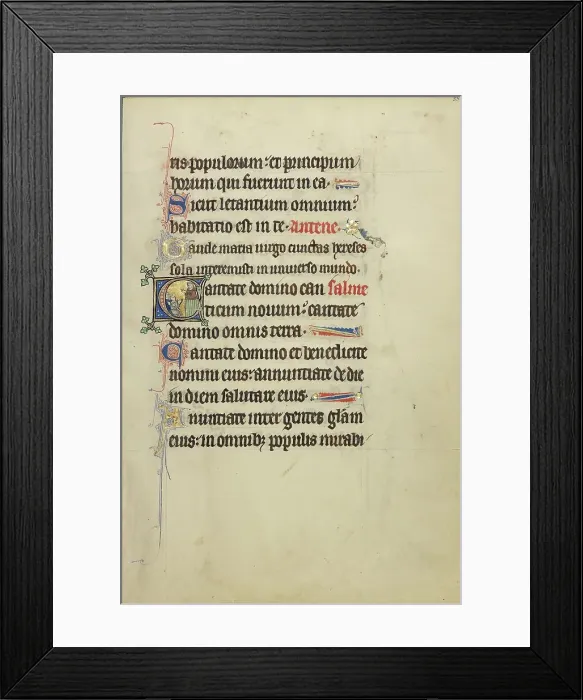 ris populorum: et principum
horum qui fuerunt in ea.
Sicut letantium omnium:
habitatio est in te. Antene.
Gaude maria virgo cunctas hereses
sola interemisti in universo mundo.
Cantate domino can salme
ticum novum: cantate
domino omnis terra.
Cantate domino et benedicite
nomini eius: annuntiate de die
in diem salutare eius.
Annuntiate inter gentes gl̄am
eius: in omnibꝫ populis mirabi